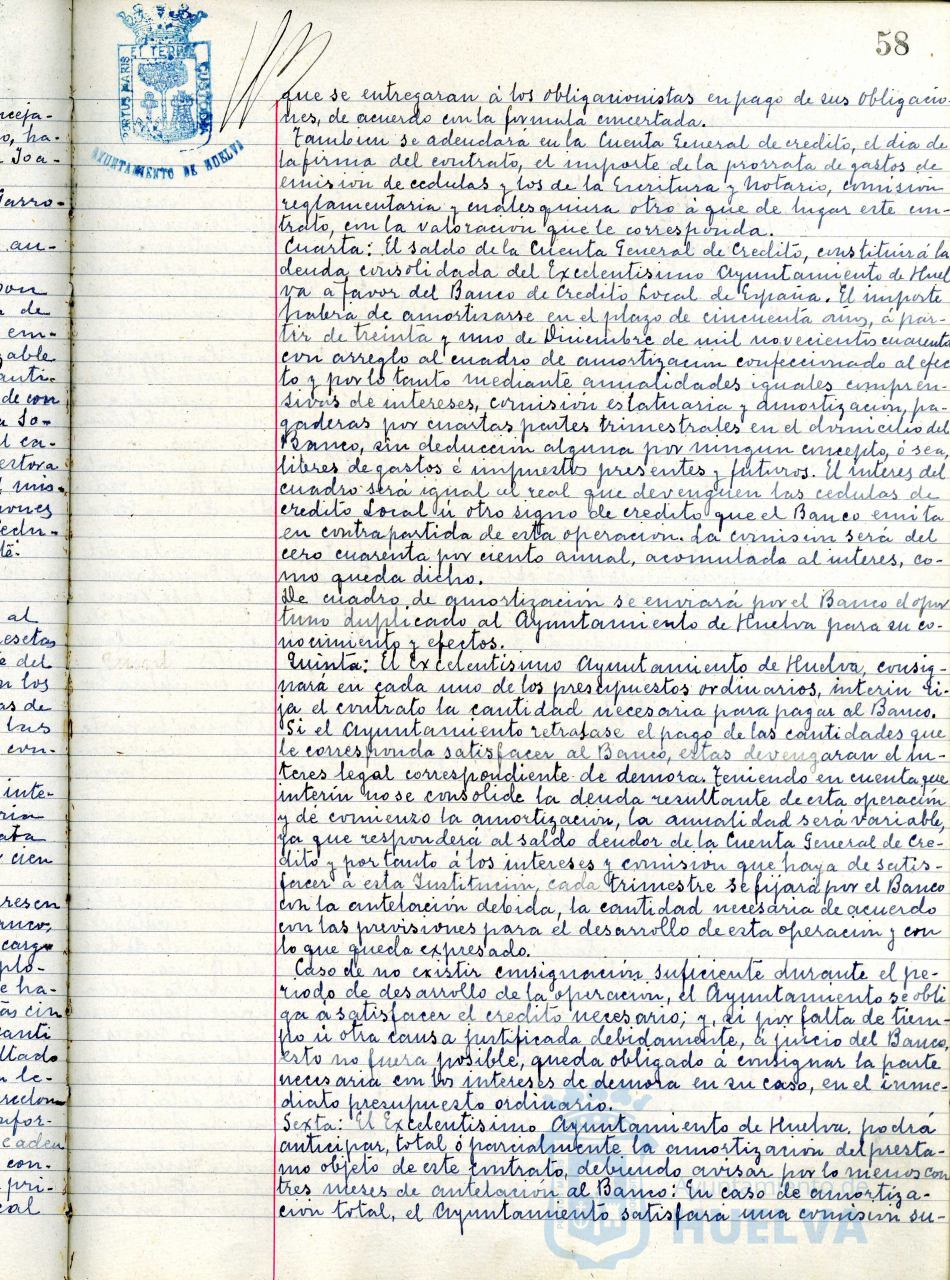 58
PORTUS MARIS ET TERRE CUSTODIA
AYUNTAMIENTO DE HUELVA
que se entregaran á los obligacionistas en pago de sus obligacio-
nes, de acuerdo con la formula concertada.
Tambien se adeudará en la Cuenta General de credito, el dia de
la firma del contrato, el importe de la prorrata de gastos de
emision de cedulas y los de la Escritura y Notario, comision
reglamentaria y cualesquiera otro á que de lugar este con-
trato, con la valoracion que le corresponda.
Cuarta: El saldo de la Cuenta General de Credito, constituirá la
deuda consolidada del Excelentisimo Ayuntamiento de Huel
va a favor del Banco de Credito Local de España. El importe
habrá de amortizarse en el plazo de cincuenta años, á par-
tir de treinta y uno de Diciembre de mil novecientos cuarenta
con arreglo al cuadro de amortizacion confeccionado al efec
to y por lo tanto mediante anualidades iguales compren-
sivas de intereses, comisión estatuaria y amortización, pa-
gaderas por cuartas partes trimestrales en el domicilio del
Banco, sin deduccion alguna por ningun concepto, ó sea,
libres de gastos é impuestos presentes y futuros. El interes del
cuadro será igual al real que devenguen las cedulas de
credito Local ú otro signo de credito que el Banco emita
en contrapartida de esta operacion. La comision será del
cero cuarenta por ciento anual, acumulada al interes, co-
mo queda dicho.
De cuadro de amortización se enviará por el Banco opor
tuno duplicado al Ayuntamiento de Huelva para su co-
nocimiento y efectos.
Quinta: El Excelentísimo Ayuntamiento de Huelva, consig-
nará en cada uno de los presupuestos ordinarios, interin ri-
ja el contrato la cantidad necesaria para pagar al Banco.
Si el Ayuntamiento retrasase el pago de las cantidades que
le corresponda satisfacer al Banco, estas devengaran el in-
teres legal correspondiente de demora. Teniendo en cuenta que
interin no se consolide la deuda resultante de esta operación
y dé comienzo la amortización, la anualidad será variable,
ya que responderá al saldo deudor de la Cuenta General de Cre-
dito y por tanto á los intereses y comisión que haya de satis-
facer a esta Institucion, cada trimestre se fijará por el Banco
con la antelación debida, la cantidad necesaria de acuerdo
con las previsiones para el desarrollo de esta operacion y con
lo que queda expresado.
Caso de no existir consignación suficiente durante el pe-
riodo de desarrollo de la operacion, el Ayuntamiento se obli
ga á satisfacer el credito necesario; y, si por falta de tiem-
po ú otra causa justificada debidamente, á juicio del Banco,
esto no fuera posible, queda obligado á consignar la parte
necesaria con los intereses de demora en su caso, en el inme-
diato presupuesto ordinario.
Sexta: El Excelentisimo Ayuntamiento de Huelva podrá
anticipar, total ó parcialmente la amortizacion del presta-
mo objeto de este contrato, debiendo avisar por lo menos con
tres meses de antelación al Banco: En caso de amortiza-
cion total, el Ayuntamiento satisfará una comision su-
Ayuntamiento de
HUELVA